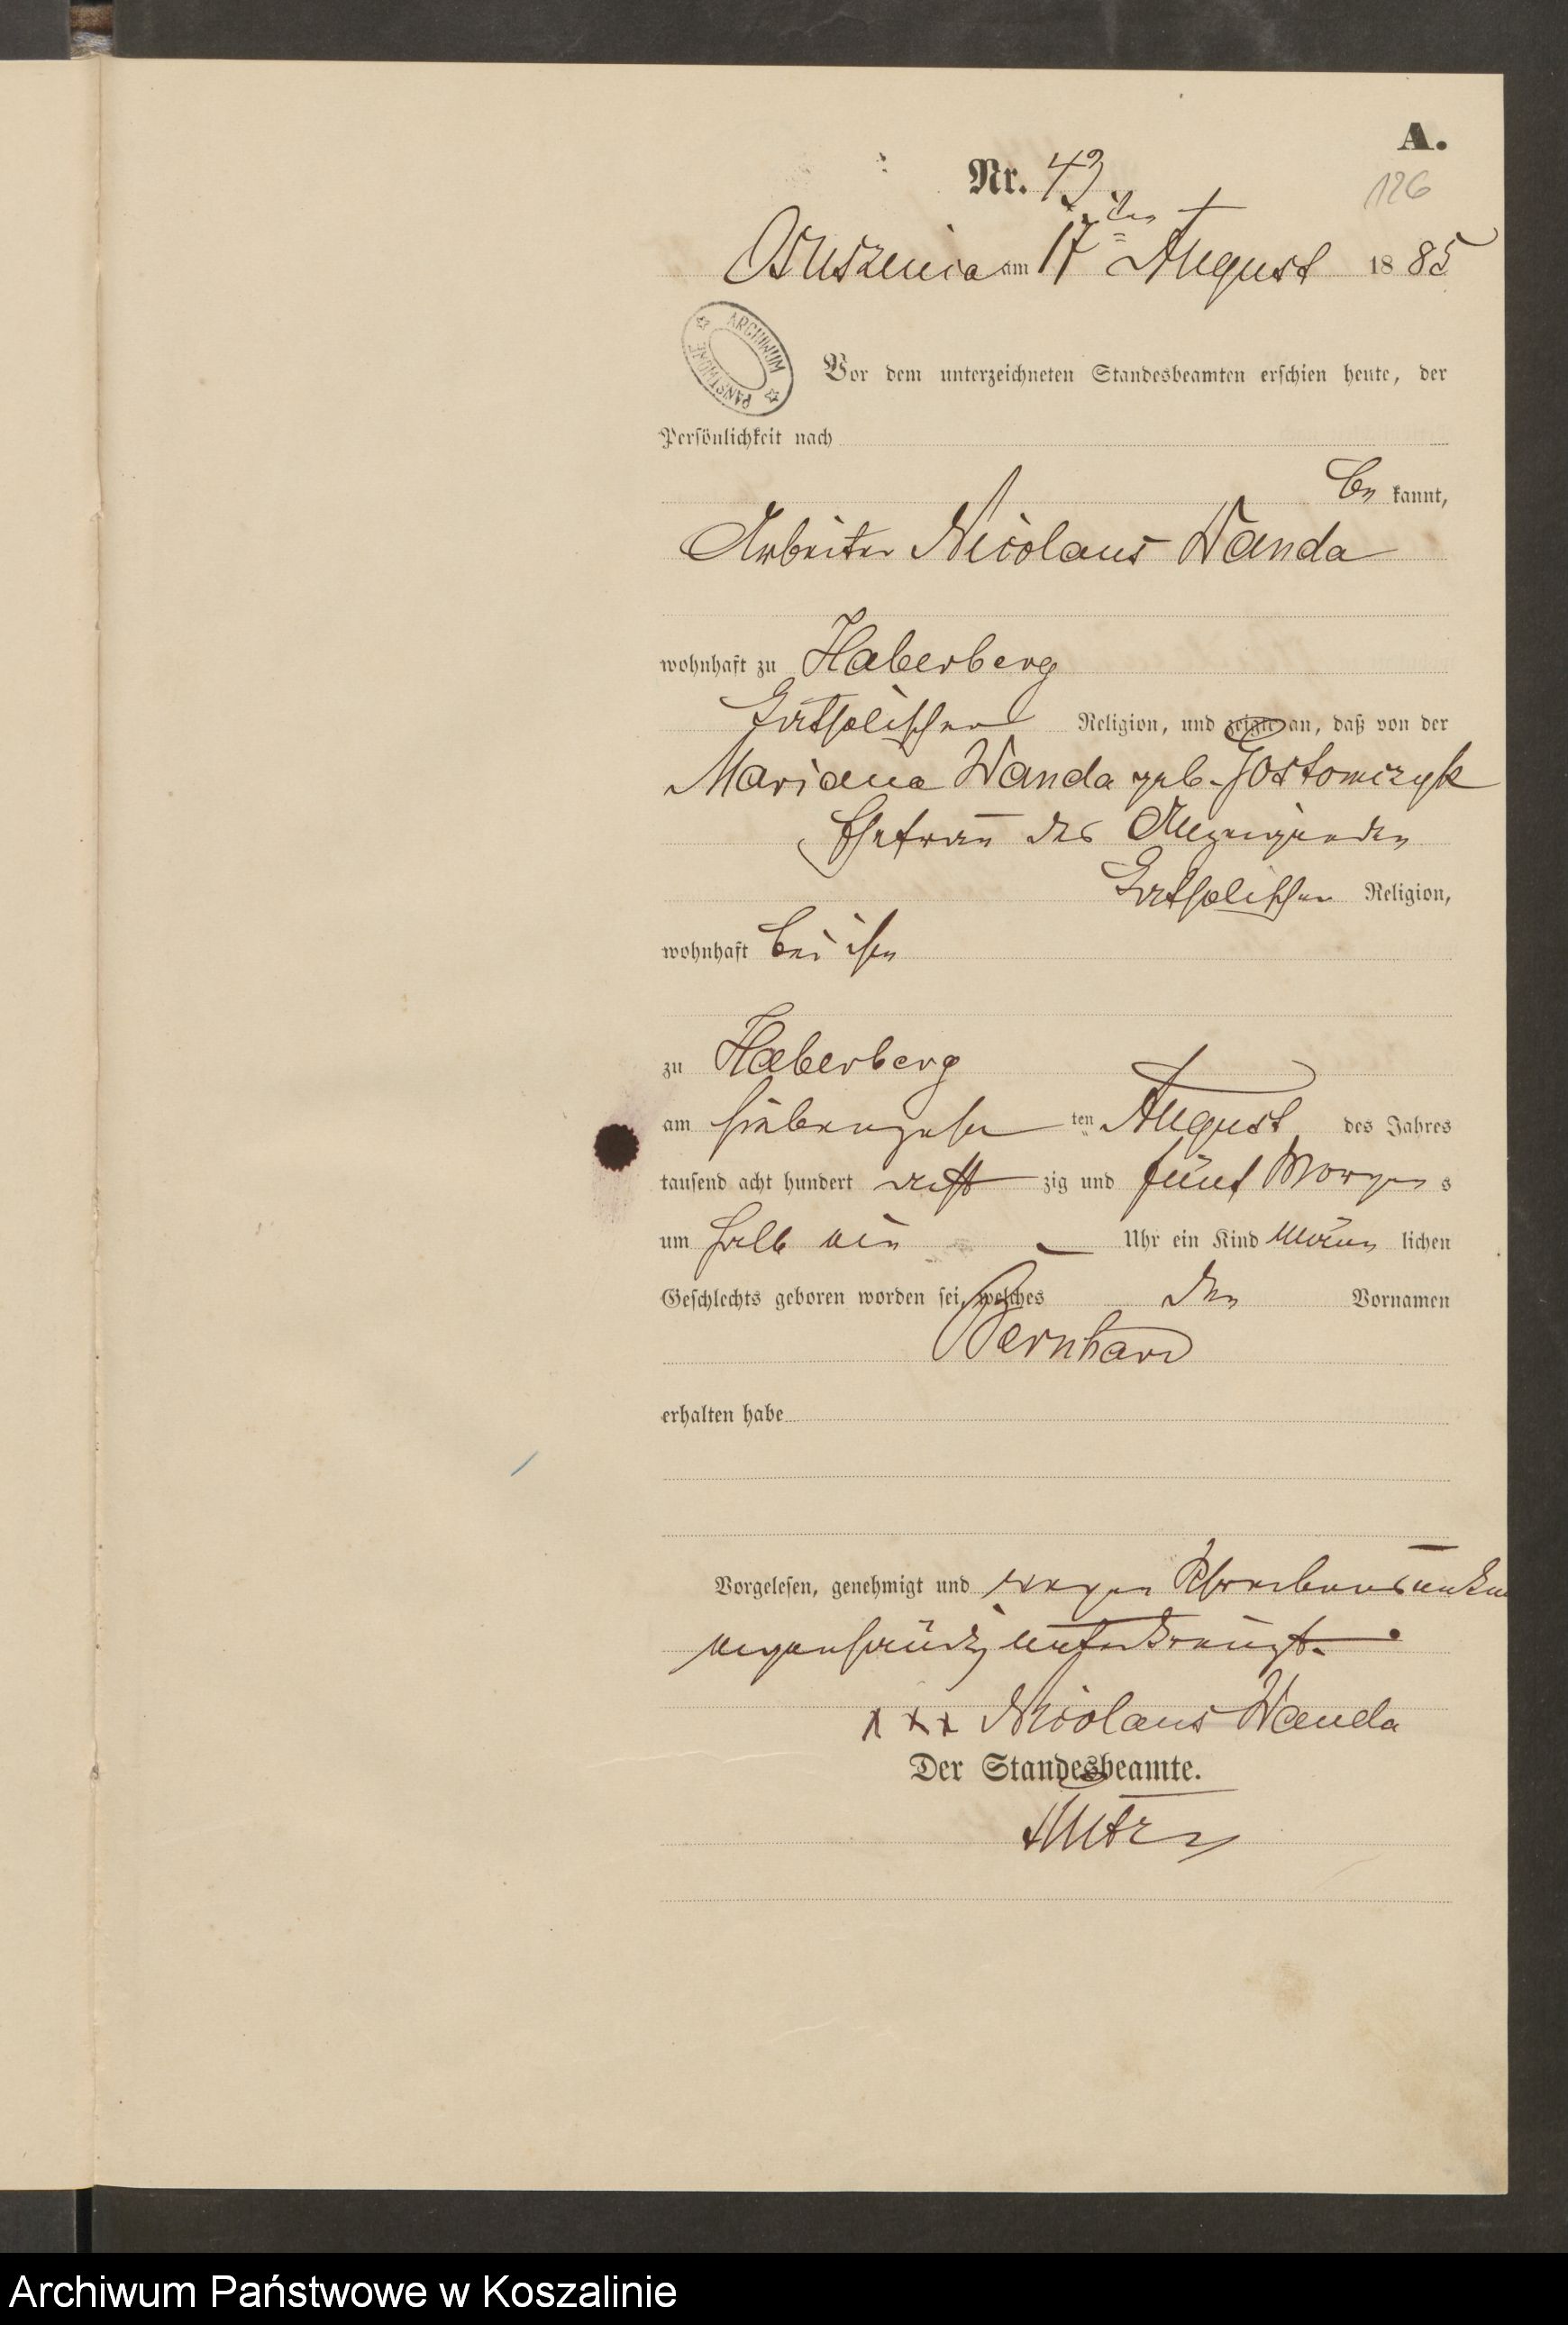 A.
Nr. 43
126
Osusznica am 17ten August 1885
ARCHIWUM PAŃSTWOWE
Vor dem unterzeichneten Standesbeamten erschien heute, der
Persönlichkeit nach
be kannt,
Arbeiter Nicolaus Wanda
wohnhaft zu Haberberg
katholischer Religion, und zeigte an, daß von der
Mariana Wanda geb. Gostomczyk
Ehefrau des Anzeigenden
katholischer Religion,
wohnhaft bei ihm
zu Haberberg
am siebenzehn ten August des Jahres
tausend acht hundert acht zig und fünf Morgens
um halb ein Uhr ein Kind männ lichen
Geschlechts geboren worden sei, welches den Vornamen
Bernhard
erhalten habe
Vorgelesen, genehmigt und wegen Schreibens
eigenhändig unterkreuzt.
xxx Nicolaus Wanda
Der Standesbeamte.
Archiwum Państwowe w Koszalinie